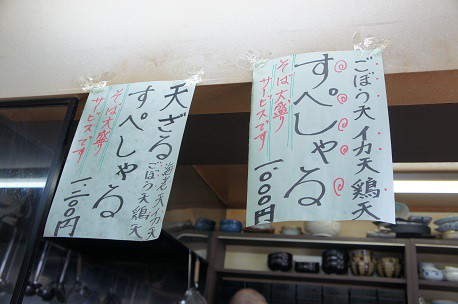 ごぼう天 イカ天 鶏天
すぺしゃる
そば大盛り
サービスです
一、〇〇〇円
天ざる
海老天 イカ天
ごぼう天 鶏天
すぺしゃる
そば大盛
サービスです
一、二〇〇円